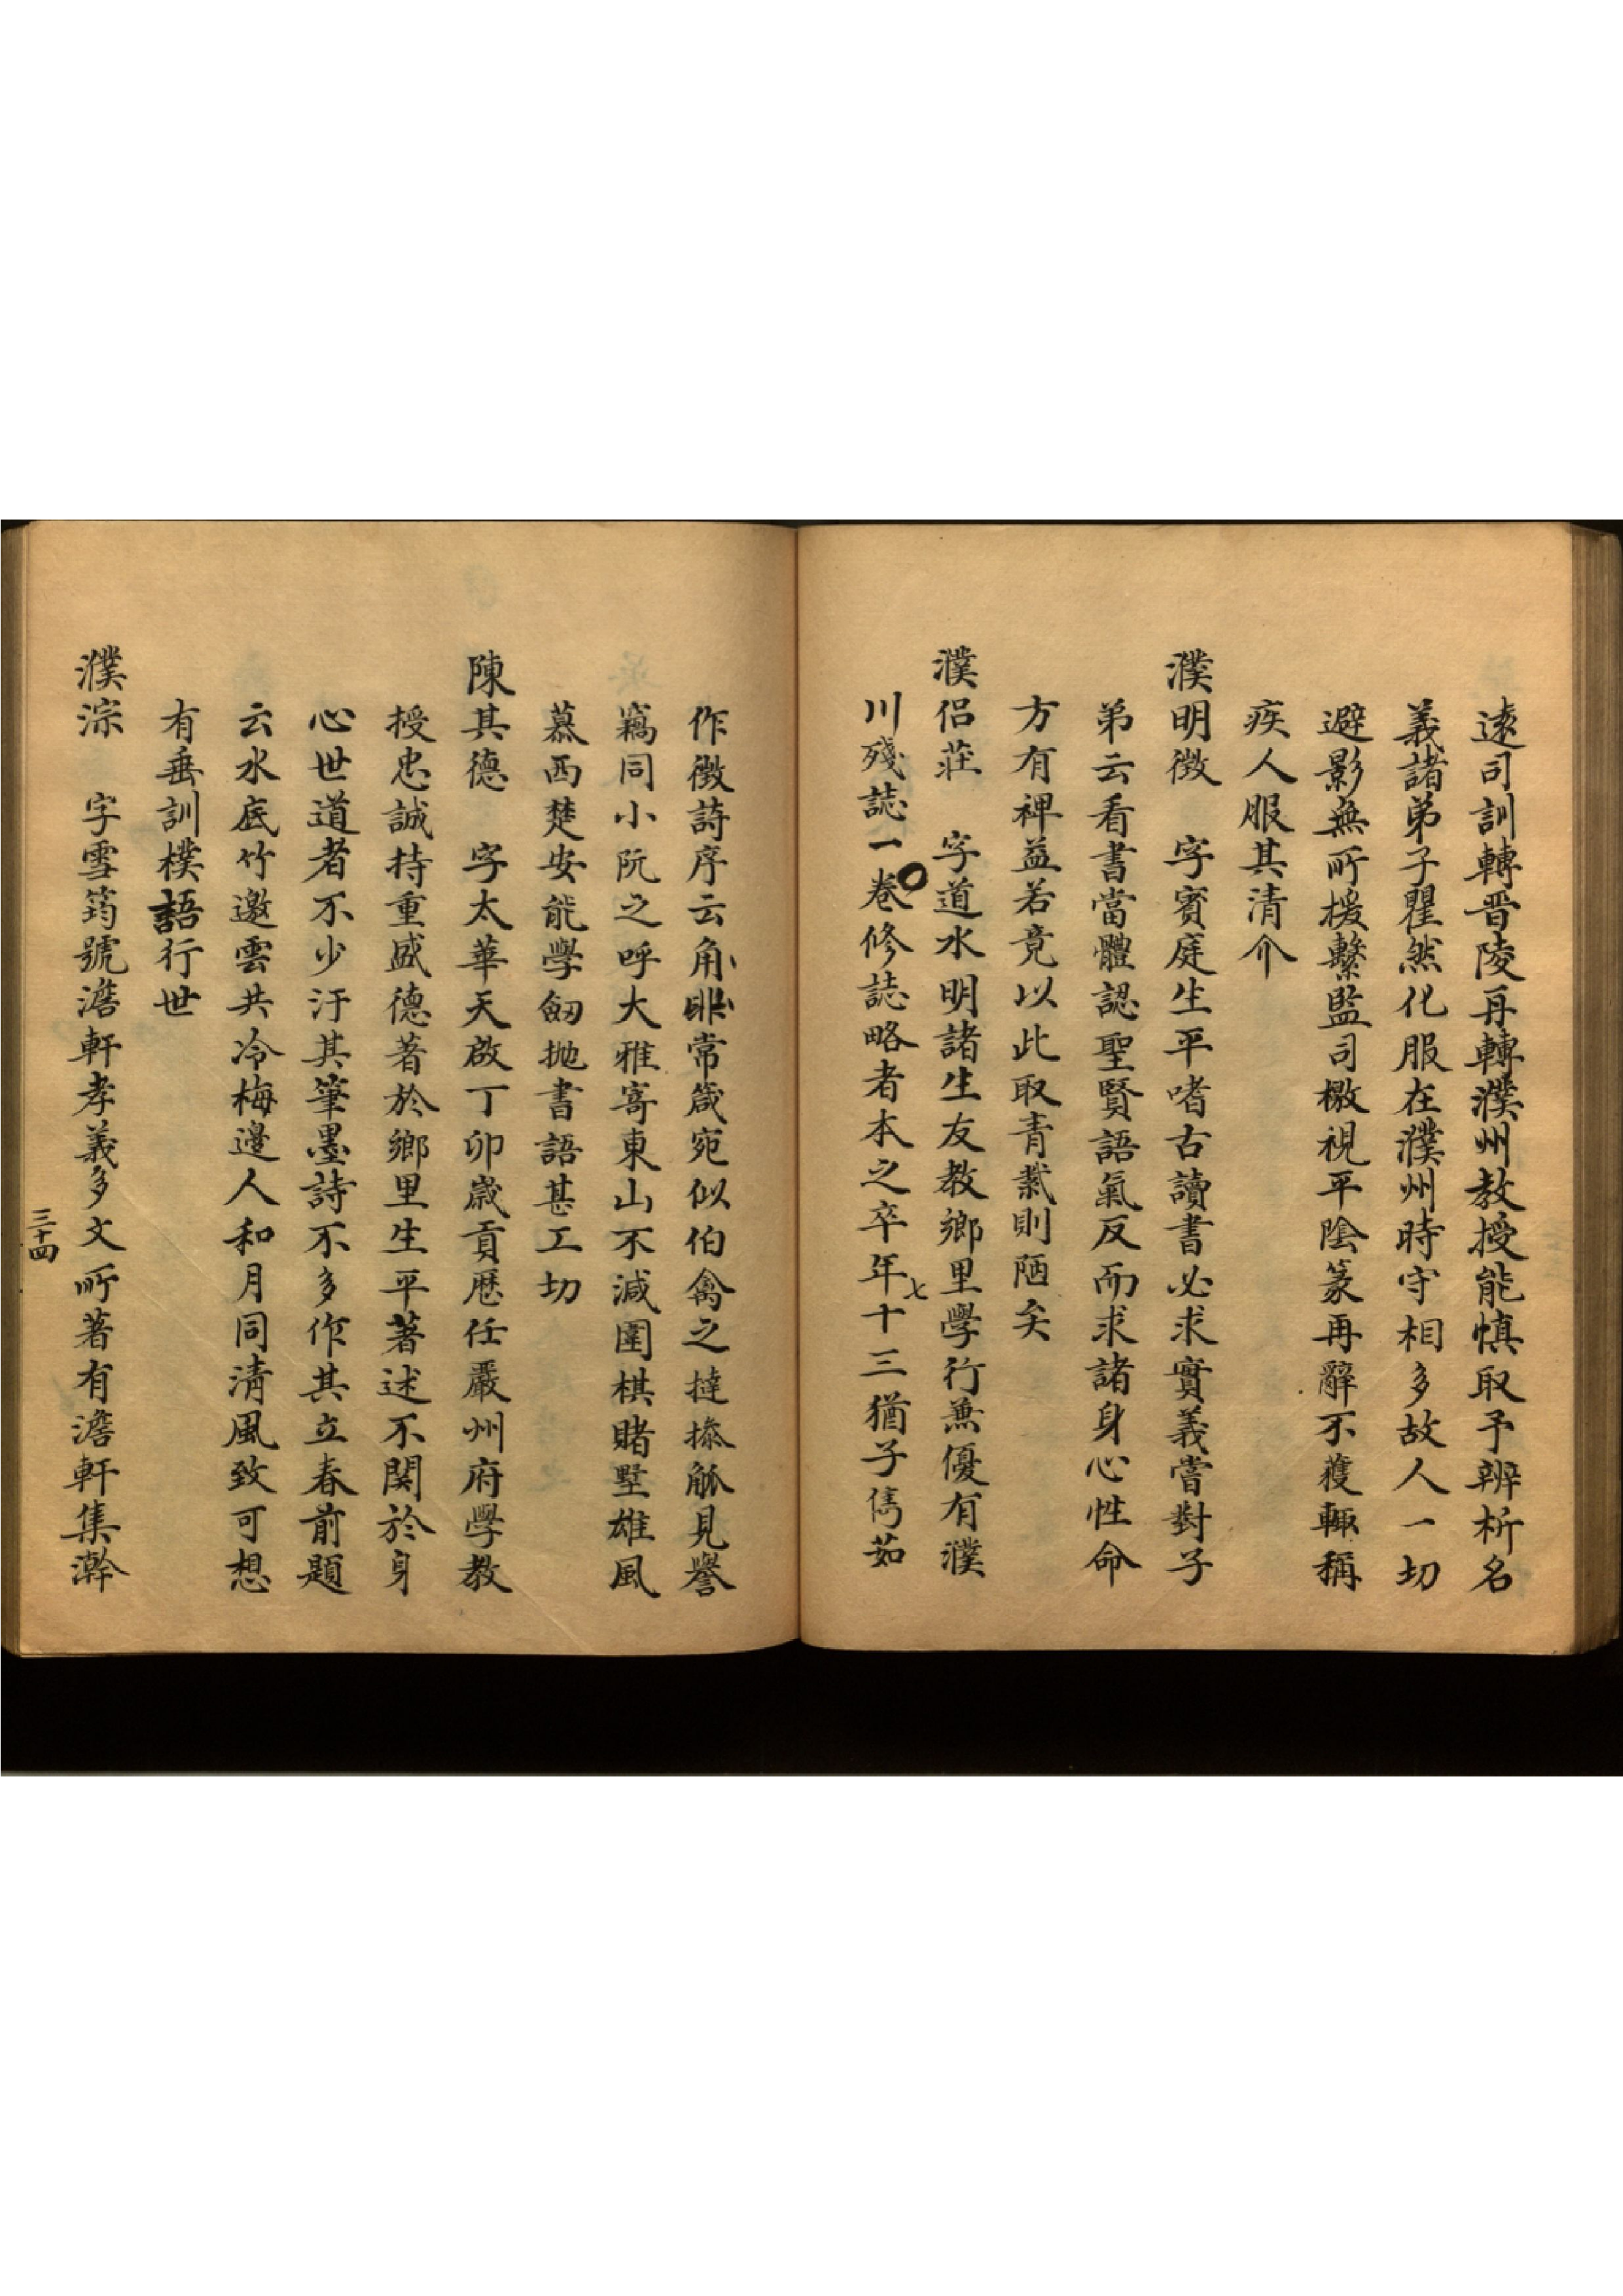 遠司訓轉晋陵再轉濮州教授能慎取予辨析名
義諸弟子瞿然化服在濮州時守相多故人一切
避影無所援繫監司檄視平陰篆再辭不獲輙稱
疾人服其清介
濮明徵　字賓庭生平嗜古讀書必求實義嘗對子
弟云看書當體認聖賢語氣反而求諸身心性命
方有裨益若竟以此取青紫則陋矣
濮侶莊　字道水明諸生友教鄉里學行兼優有濮
川殘誌一卷修誌略者本之卒年七十三猶子雋茹
作徴詩序云角哳常箴宛似伯禽之撻搽觚見譽
竊同小阮之呼大雅寄東山不減圍棋賭墅雄風
慕西楚安能學劒抛書語甚工切
陳其德　字太華天啟丁卯歲貢歷任嚴州府學教
授忠誠持重盛德著於鄉里生平著述不関於身
心世道者不少汙其筆墨詩不多作其立春前題
云水底竹邀雲共冷梅邊人和月同清風致可想
有垂訓樸語行世
濮淙　字雪筠號澹軒孝義多文所著有澹軒集澣
三十四